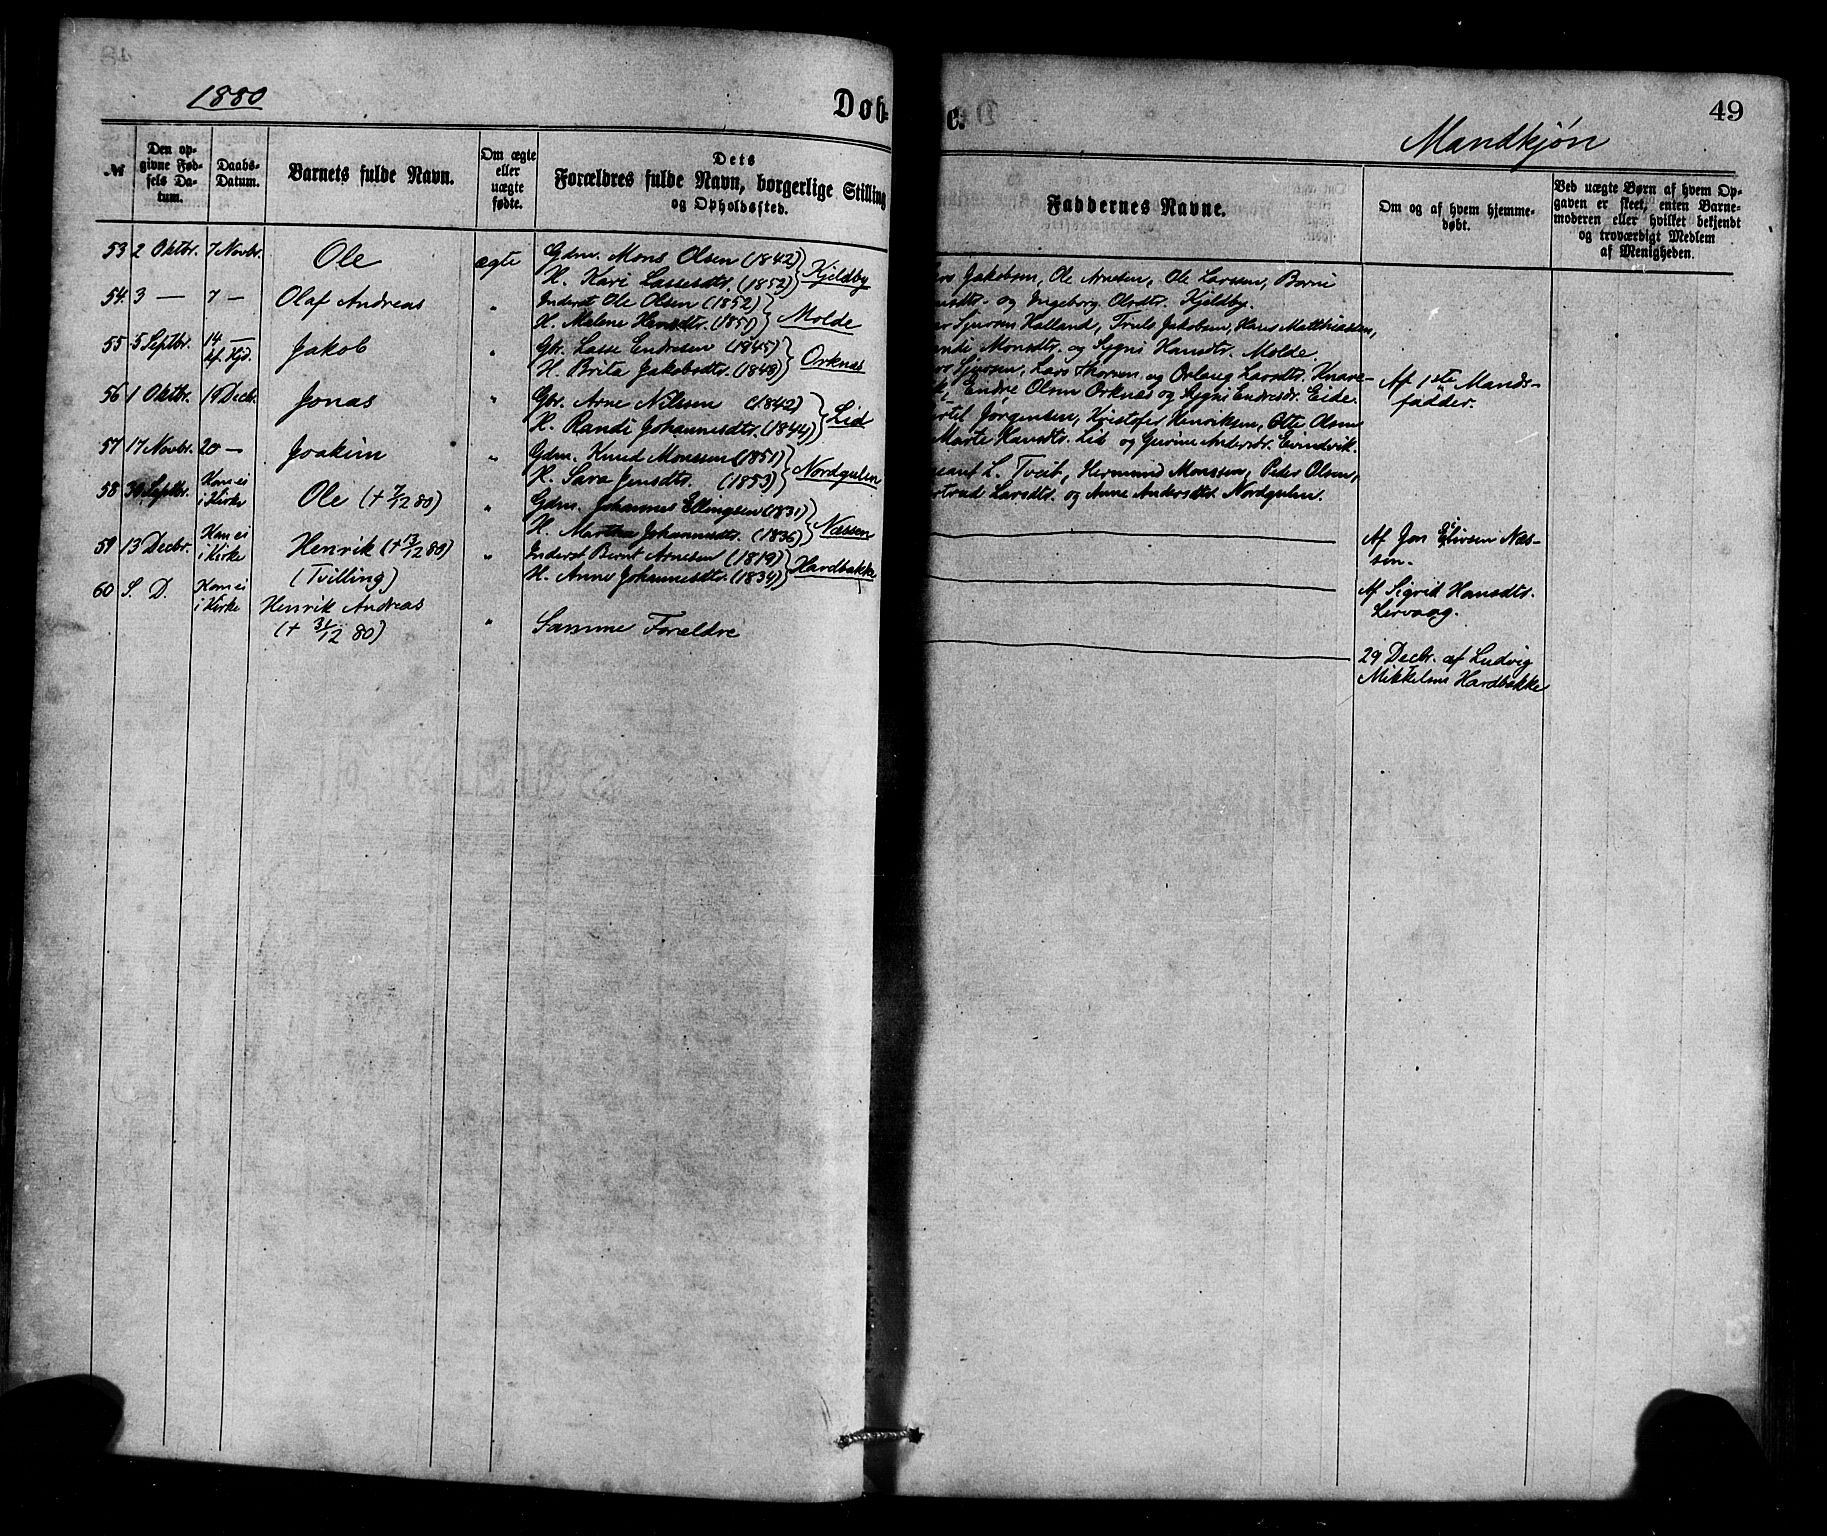 1880
Døb-
e.
49
Mandkjøn
№
Den op-
givne Fød-
sels Da-
tum.
Daabs-
Datum.
Barnets fulde Navn.
Om ægte
eller
uægte
fødte.
Dets
Forældres fulde Navn, borgerlige Stilling
og Opholdssted.
Faddernes Navne.
Om og af hvem hjemme-
døbt.
Ved uægte Børn af hvem Op-
gaven er skeet, enten Barne-
moderen eller hvilket bekjendt
og troværdigt Medlem
af Menigheden.
53 2 Oktbr. 7 Novbr. Ole ægte Gdm. Mons Olsen (1842)
H. Kari Lassesdtr. (1852) Kjeldby
Jakobsen, Ole Arnesen, Ole Larssen, Barni
og Ingeborg Olsdtr. Kjeldby.
54. 3 — 7 — Olaf Andreas " Inderst Ole Olsen (1852)
H. Malene Hansdtr. (1851) Molde
Sjursen Halland, Truls Jakobsen, Hans Matthiassen,
Monsdtr. og Sygni Hansdtr. Molde.
55 5 Septbr. 14 — Jakob " Gbr. Lasse Endresen (1845)
H. Brita Jakobsdtr. (1848) Orknæs
Sjursen, Lars Thorsen og Orlaug Larsdtr. Knare-
Endre Olsen Orknæs og Sygni Endresdr. Eide.
Af 1ste Mands-
fadder.
56 1 Oktbr. 19 Decbr. Jonas " Gbr. Arne Nilssen (1842)
H. Randi Johannesdtr. (1844) Lid
Jørgensen, Kristofer Henriksen, Otte Olsen
Marte Hansdtr. Lid og Gurine Andersdr. Evindvik.
57 17 Novbr. 20 — Joakim " Gdm. Knud Monssen (1851)
H. Sara Jensdtr. (1853) Nordgulen
L. Tveit, Hermund Monssen, Peder Olsen,
Larsdtr. og Anne Andersdtr. Nordgulen.
58 30 Septbr. Kom ei
i Kirke Ole (+ 7/12 80) " Gdm. Johannes Ellingsen (1831)
H. Martha Johannesdtr. (1836) Næssen
Af Jon Eliesen Næs-
sen.
59 13 Decbr. Kom ei
i Kirke Henrik (+ 13/12 80)
(Tvilling) " Inderst Bernt Arnesen (1819)
H. Anne Johannesdtr. (1834) Hardbakke
Af Sigrid Hansdtr.
Lervaag.
60 S. D. Kom ei
i Kirke Henrik Andreas
(+ 31/12 80) " Samme Forældre
29 Decbr. af Ludvig
Mikkelsen Hardbakke